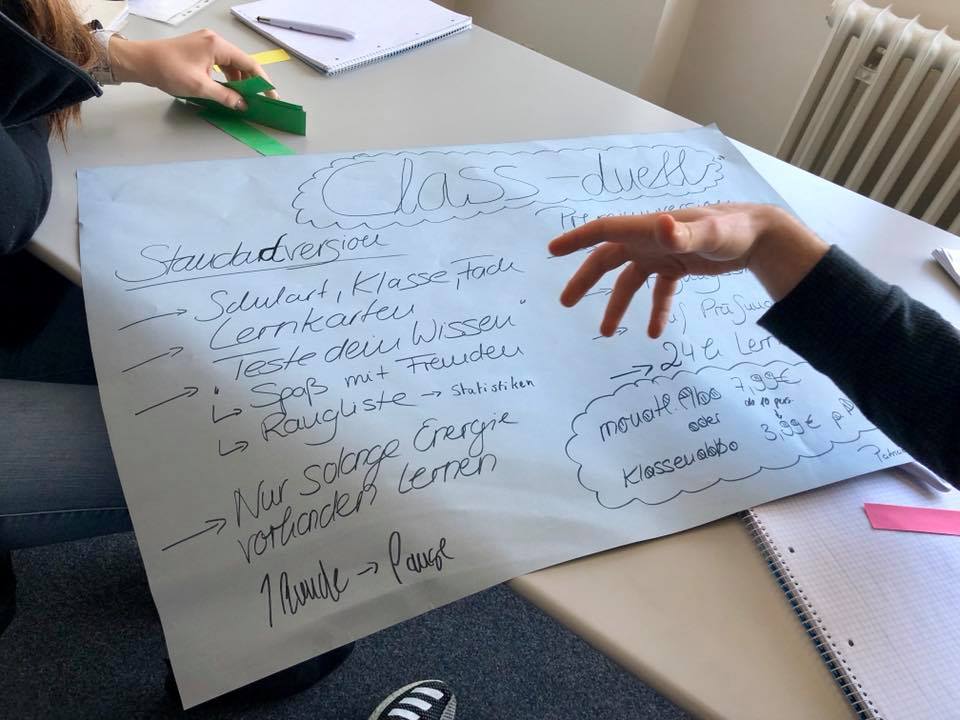 Class-duell
Standardversion
→ Schulart, Klasse, Fach
→ Lernkarten
→ "Teste dein Wissen"
↳ Spaß mit Freunden
↳ Rangliste → Statistiken
→ Nur solange Energie
vorhanden lernen
1 Runde → Pause
→ 24h
monatl. Abo 7,99€
oder ab 10 pers.
Klassenabo 3,99€